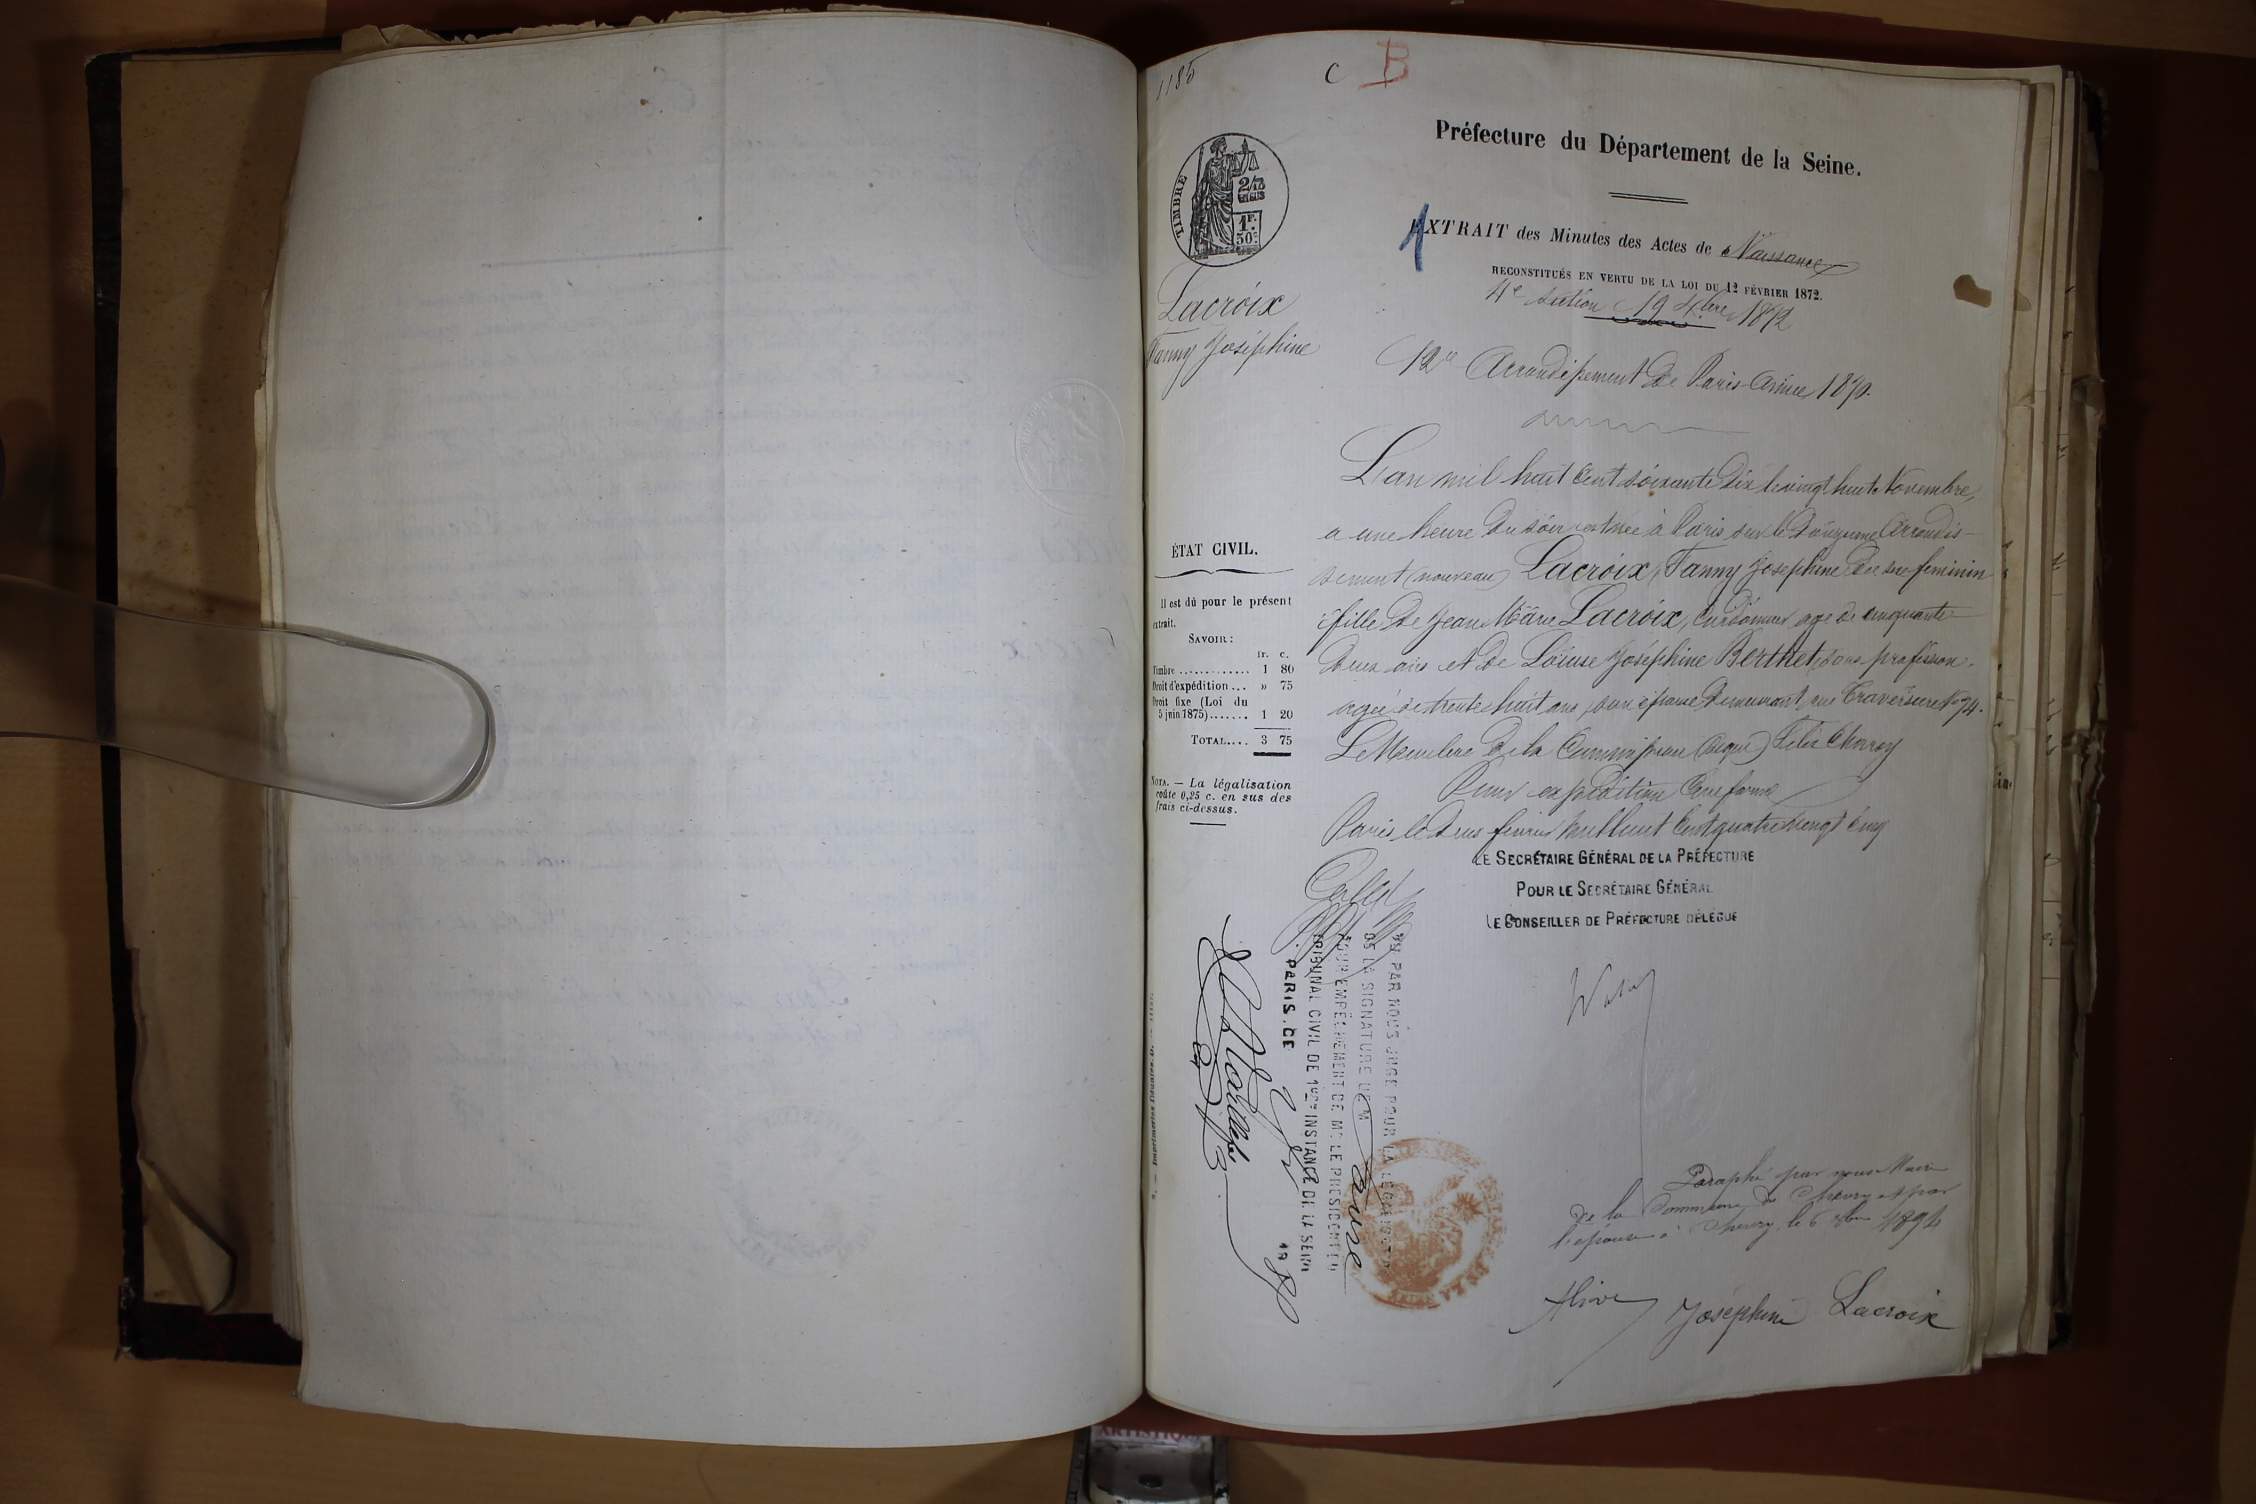 1185
C B
Préfecture du Département de la Seine.
TIMBRE
2/10 EN SUS
1F. 50c
EXTRAIT des Minutes des Actes de Naissance
RECONSTITUÉS EN VERTU DE LA LOI DU 12 FÉVRIER 1872.
4e section 19 Xbre 1872
Lacroix
Fanny Joséphine
12e Arrondissement de Paris Année 1870.
L'an mil huit cent soixante dix le vingt huit Novembre,
a une heure du soir est née à Paris sur le douzième Arrondis-
sement (nouveau) Lacroix, Fanny Josephine du sexe feminin
fille de Jean Marie Lacroix, Cordonnier age de cinquante
deux ans et de Louise Joséphine Berthet, sans profession.
agée de trente huit ans, son épouse demeurant rue Traversière No 74.
Le Membre de la Commission (signé) Félix Chorroy
Pour expédition Conforme
Paris le deux février mil huit Cent quatre vingt cinq
LE SECRÉTAIRE GÉNÉRAL DE LA PRÉFECTURE
POUR LE SECRÉTAIRE GÉNÉRAL
LE CONSEILLER DE PRÉFECTURE DÉLÉGUÉ
ÉTAT CIVIL.
Il est dû pour le présent
extrait.
SAVOIR :
fr. c.
Timbre ............. 1 80
Droit d'expédition ... » 75
Droit fixe (Loi du
5 juin 1875) ....... 1 20
TOTAL.... 3 75
NOTA. — La légalisation
coûte 0,25 c. en sus des
frais ci-dessus.
VU PAR NOUS JUGE POUR LA LÉGALISATION
DE LA SIGNATURE DE M
POUR EMPÊCHEMENT DE M. LE PRÉSIDENT DU
TRIBUNAL CIVIL DE 1ère INSTANCE DE LA SEINE
PARIS, CE 18
Paraphé par nous Maire
de la Commune de Chevry et par
l'épouse à Chevry, le 6 1894
Josephine Lacroix
ARTISTIQUE